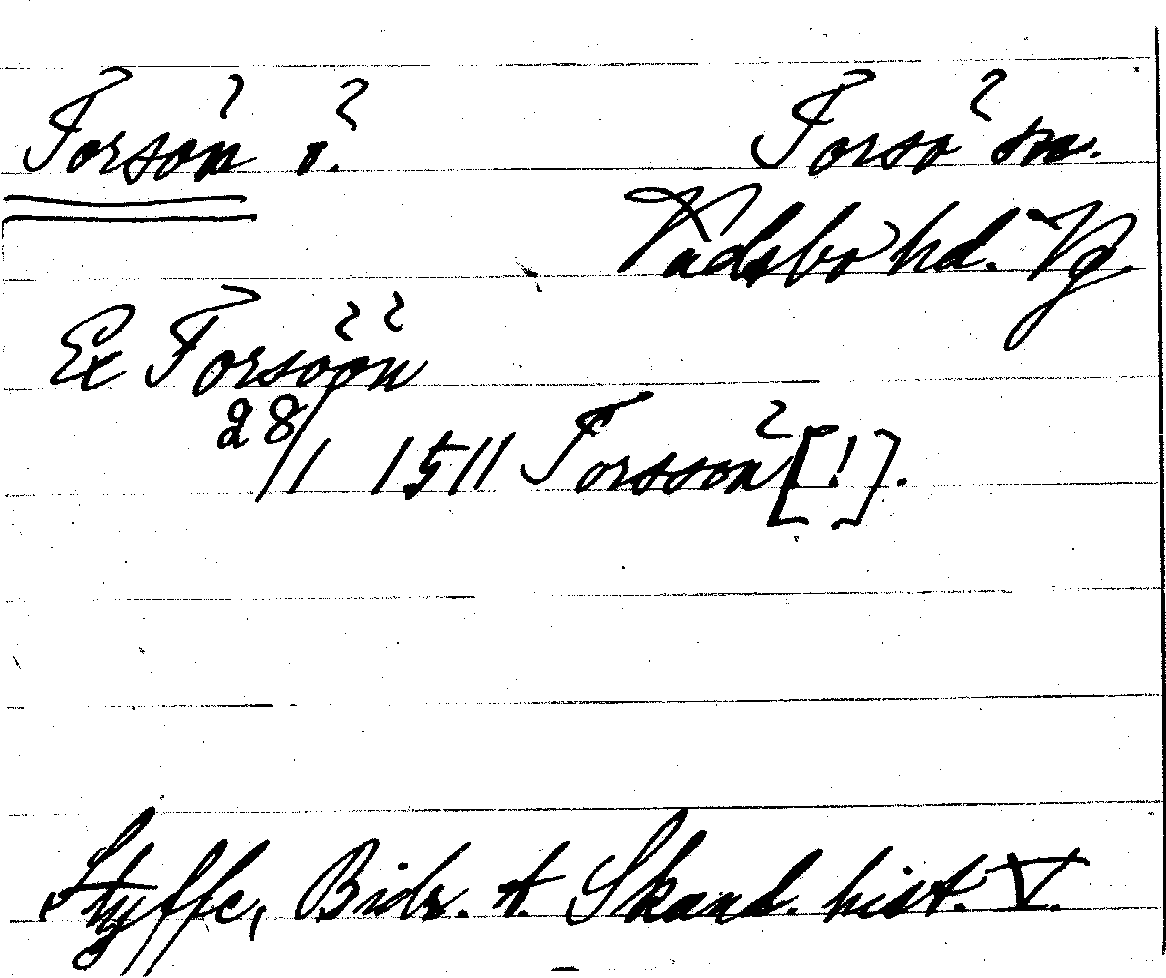 Torsön ö.
Torsö sn.
Vadsbo hd. Vg
Ex Torsöön
28/1 1511 Torssön [!].
Styffe, Bidr. t. Skand. hist. V.